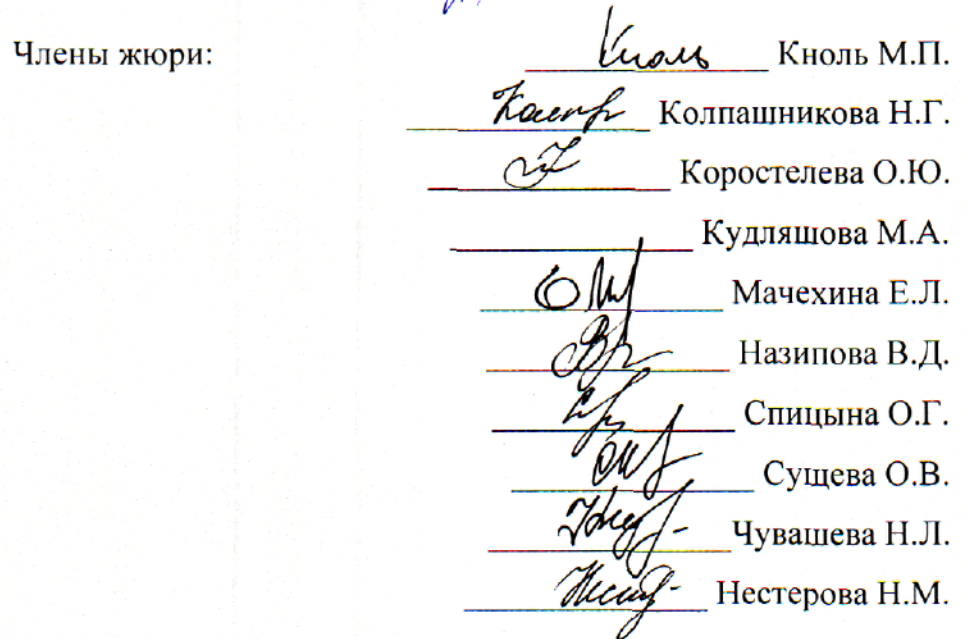 Члены жюри: Кноль Кноль М.П.
Колпашникова Н.Г.
Коростелева О.Ю.
Кудляшова М.А.
Мачехина Е.Л.
Назипова В.Д.
Спицына О.Г.
Сущева О.В.
Чувашева Н.Л.
Нестерова Н.М.